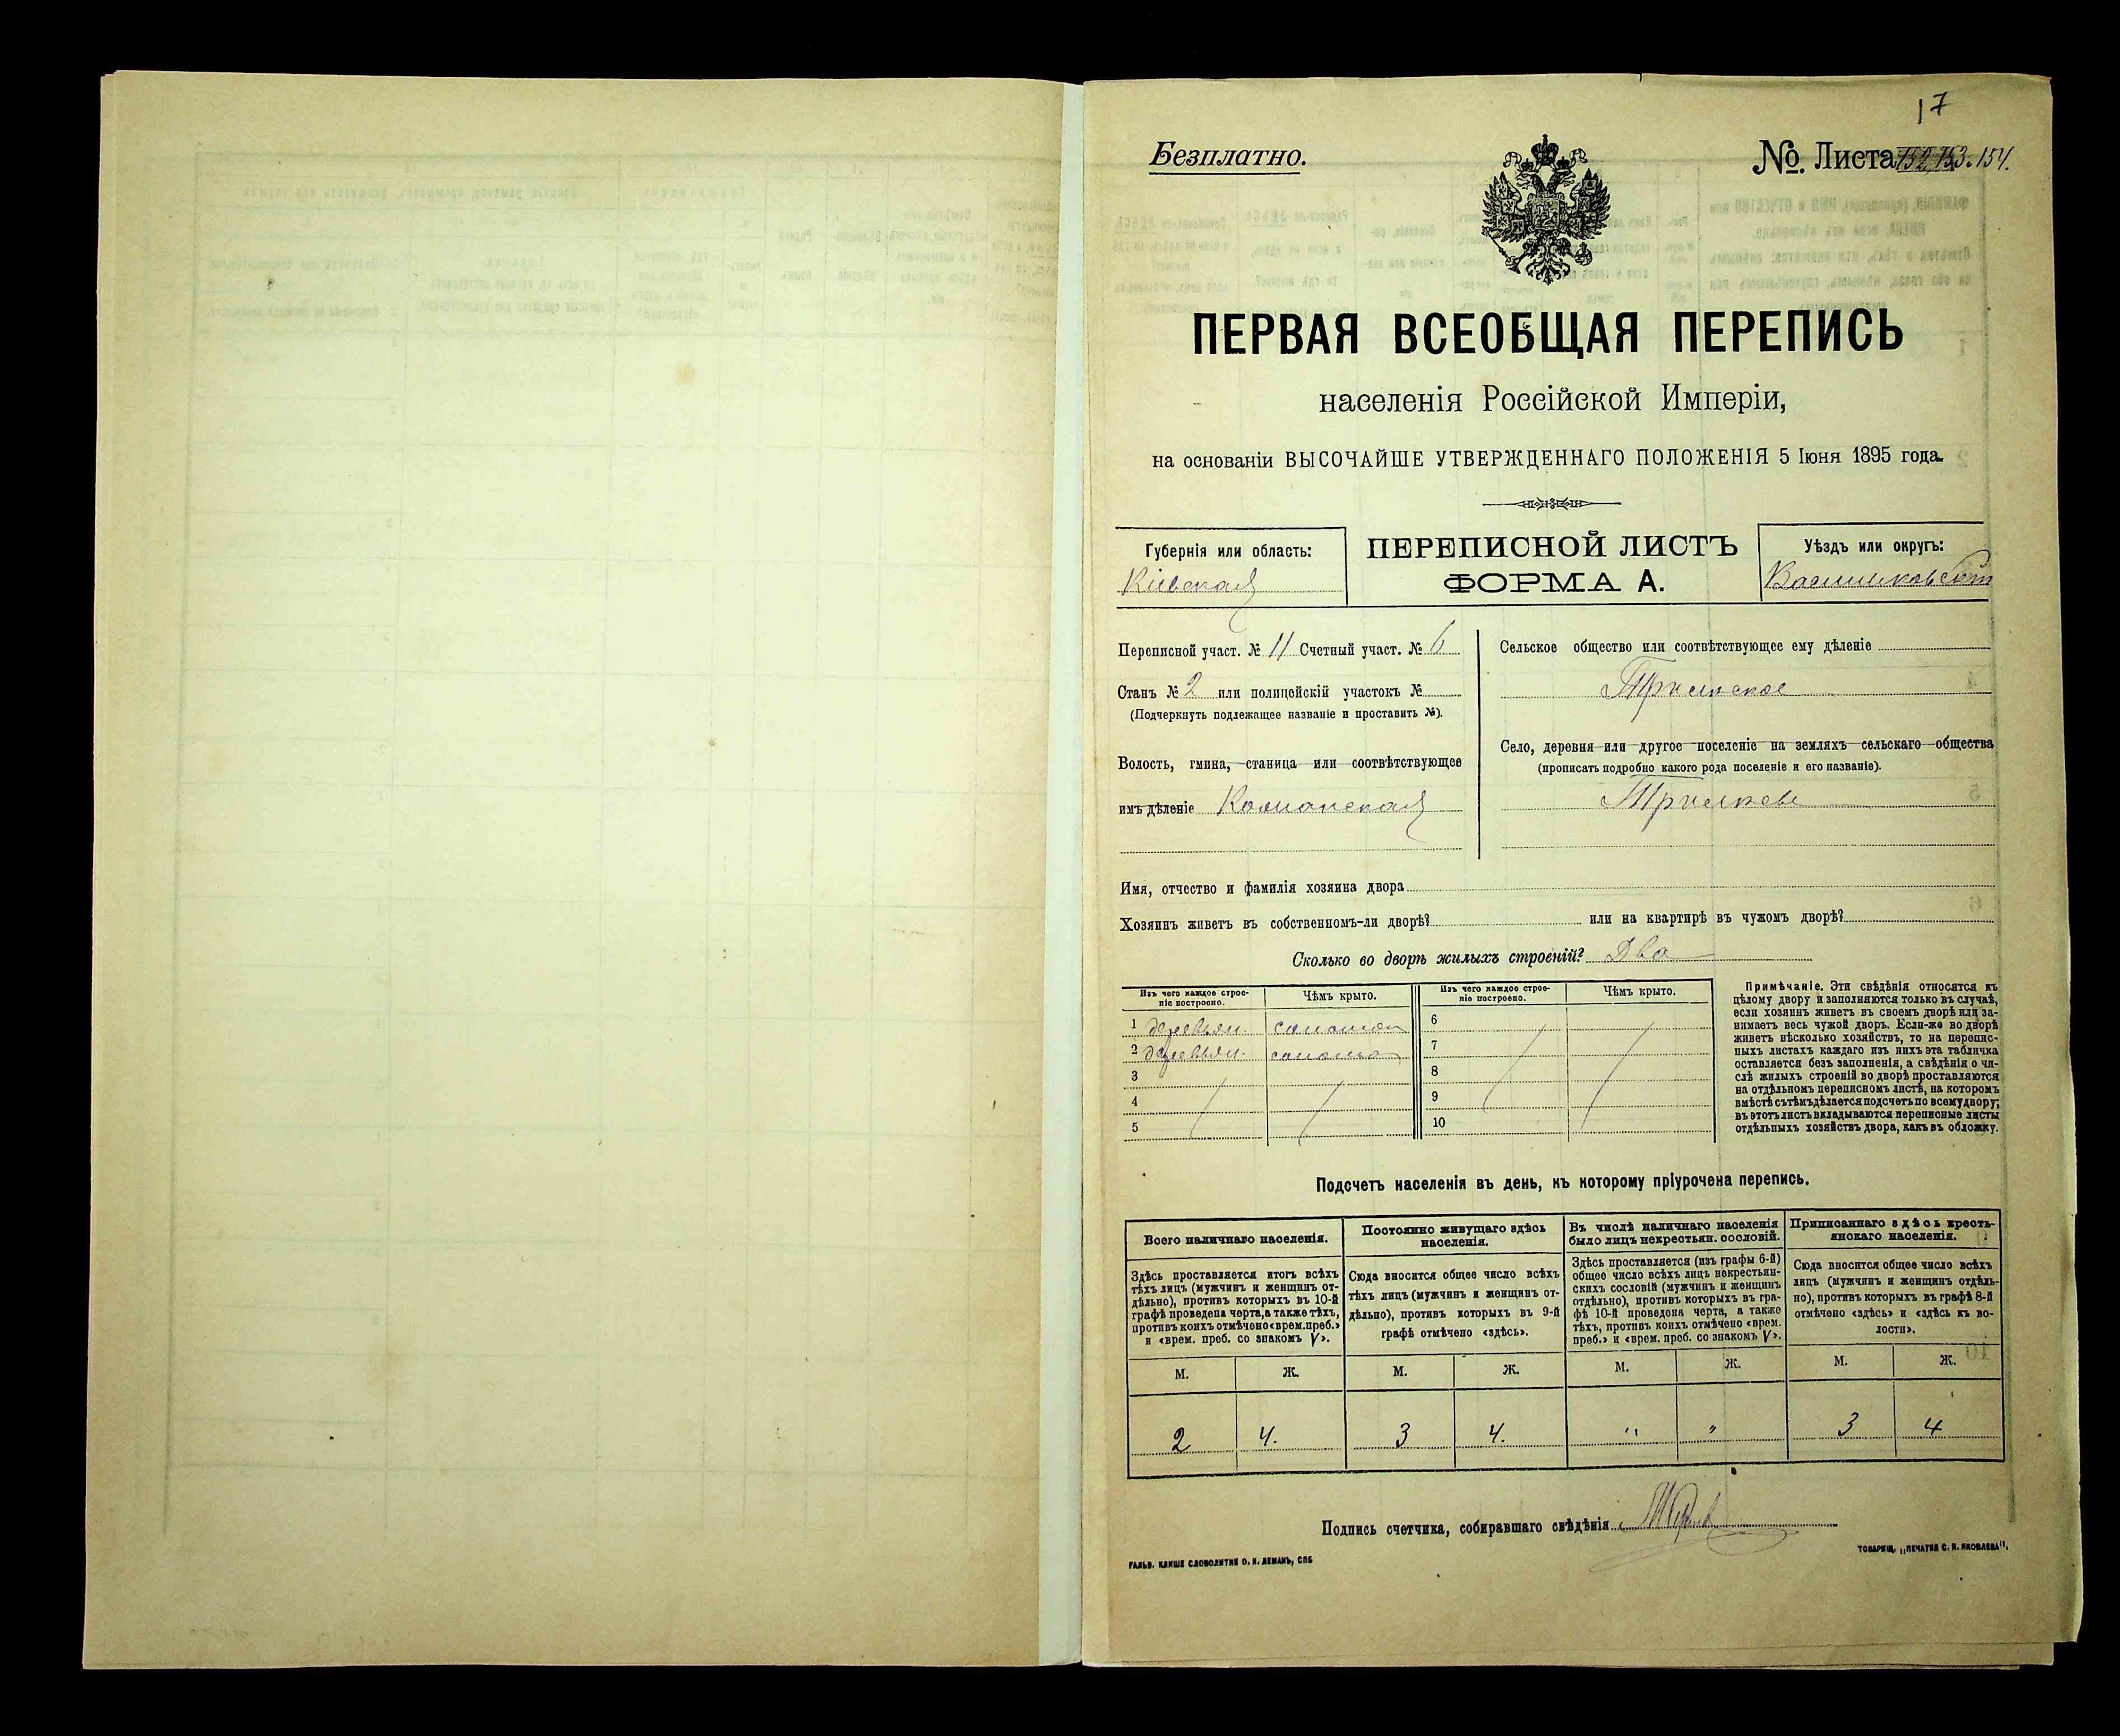 17
Безплатно.
№ Листа 154.
ПЕРВАЯ ВСЕОБЩАЯ ПЕРЕПИСЬ
населенія Россійской Имперіи,
на основаніи ВЫСОЧАЙШЕ УТВЕРЖДЕННАГО ПОЛОЖЕНІЯ 5 Іюня 1895 года.
Губернія или область:
Кіевская
ПЕРЕПИСНОЙ ЛИСТЪ
ФОРМА А.
Уѣздъ или округъ:
Васильковскій
Переписной участ. № 11 Счетный участ. № 6
Станъ № 2 или полицейскій участокъ №
(Подчеркнуть подлежащее названіе и проставить №).
Волость, гмина, станица или соотвѣтствующее
имъ дѣленіе
Сельское общество или соотвѣтствующее ему дѣленіе
Трилѣское
Село, деревня или другое поселеніе на земляхъ сельскаго общества
(прописать подробно какого рода поселеніе и его названіе).
Имя, отчество и фамилія хозяина двора
Хозяинъ живетъ въ собственномъ-ли дворѣ? или на квартирѣ въ чужомъ дворѣ?
Сколько во дворѣ жилыхъ строеній? Два
Изъ чего каждое строе-
ніе построено.
Чѣмъ крыто.
Изъ чего каждое строе-
ніе построено.
Чѣмъ крыто.
1 деревян. солом
6
2 деревян. солом
7
3
8
4
9
5
10
Примѣчаніе. Эти свѣдѣнія относятся къ
цѣлому двору и заполняются только въ случаѣ,
если хозяинъ живетъ въ своемъ дворѣ или за-
нимаетъ весь чужой дворъ. Если-же во дворѣ
живетъ нѣсколько хозяйствъ, то на перепис-
ныхъ листахъ каждаго изъ нихъ эта табличка
оставляется безъ заполненія, а свѣдѣнія о чи-
слѣ жилыхъ строеній во дворѣ проставляются
на отдѣльномъ переписномъ листѣ, на которомъ
вмѣстѣ съ тѣмъ дѣлается подсчетъ по всему двору;
въ этотъ листъ вкладываются переписные листы
отдѣльныхъ хозяйствъ двора, какъ въ обложку.
Подсчетъ населенія въ день, къ которому пріурочена перепись.
Всего наличнаго населенія.
Здѣсь проставляется итогъ всѣхъ
тѣхъ лицъ (мужчинъ и женщинъ от-
дѣльно), противъ которыхъ въ 10-й
графѣ проведена черта, а также тѣхъ,
противъ коихъ отмѣчено «врем. преб.»
и «врем. преб. со знакомъ V».
Постоянно живущаго здѣсь
населенія.
Сюда вносится общее число всѣхъ
тѣхъ лицъ (мужчинъ и женщинъ от-
дѣльно), противъ которыхъ въ 9-й
графѣ отмѣчено «здѣсь».
Въ числѣ наличнаго населенія
было лицъ некрестьян. сословій.
Здѣсь проставляется (изъ графы 6-й)
общее число всѣхъ лицъ некрестьян-
скихъ сословій (мужчинъ и женщинъ
отдѣльно), противъ которыхъ въ гра-
фѣ 10-й проведена черта, а также
тѣхъ, противъ коихъ отмѣчено «врем.
преб.» и «врем. преб. со знакомъ V».
Приписаннаго здѣсь кресть-
янскаго населенія.
Сюда вносится общее число всѣхъ
лицъ (мужчинъ и женщинъ отдѣль-
но), противъ которыхъ въ графѣ 8-й
отмѣчено «здѣсь» и «здѣсь къ во-
лости».
М. Ж. М. Ж. М. Ж. М. Ж.
2 4. 3 4. " " 3 4
Подпись счетчика, собиравшаго свѣдѣнія
ГАЛЬВ. КЛИШЕ СЛОВОЛИТНИ О. И. ЛЕМАНЪ, СПБ
ТОВАРИЩ. „ПЕЧАТНЯ С. П. ЯКОВЛЕВА".